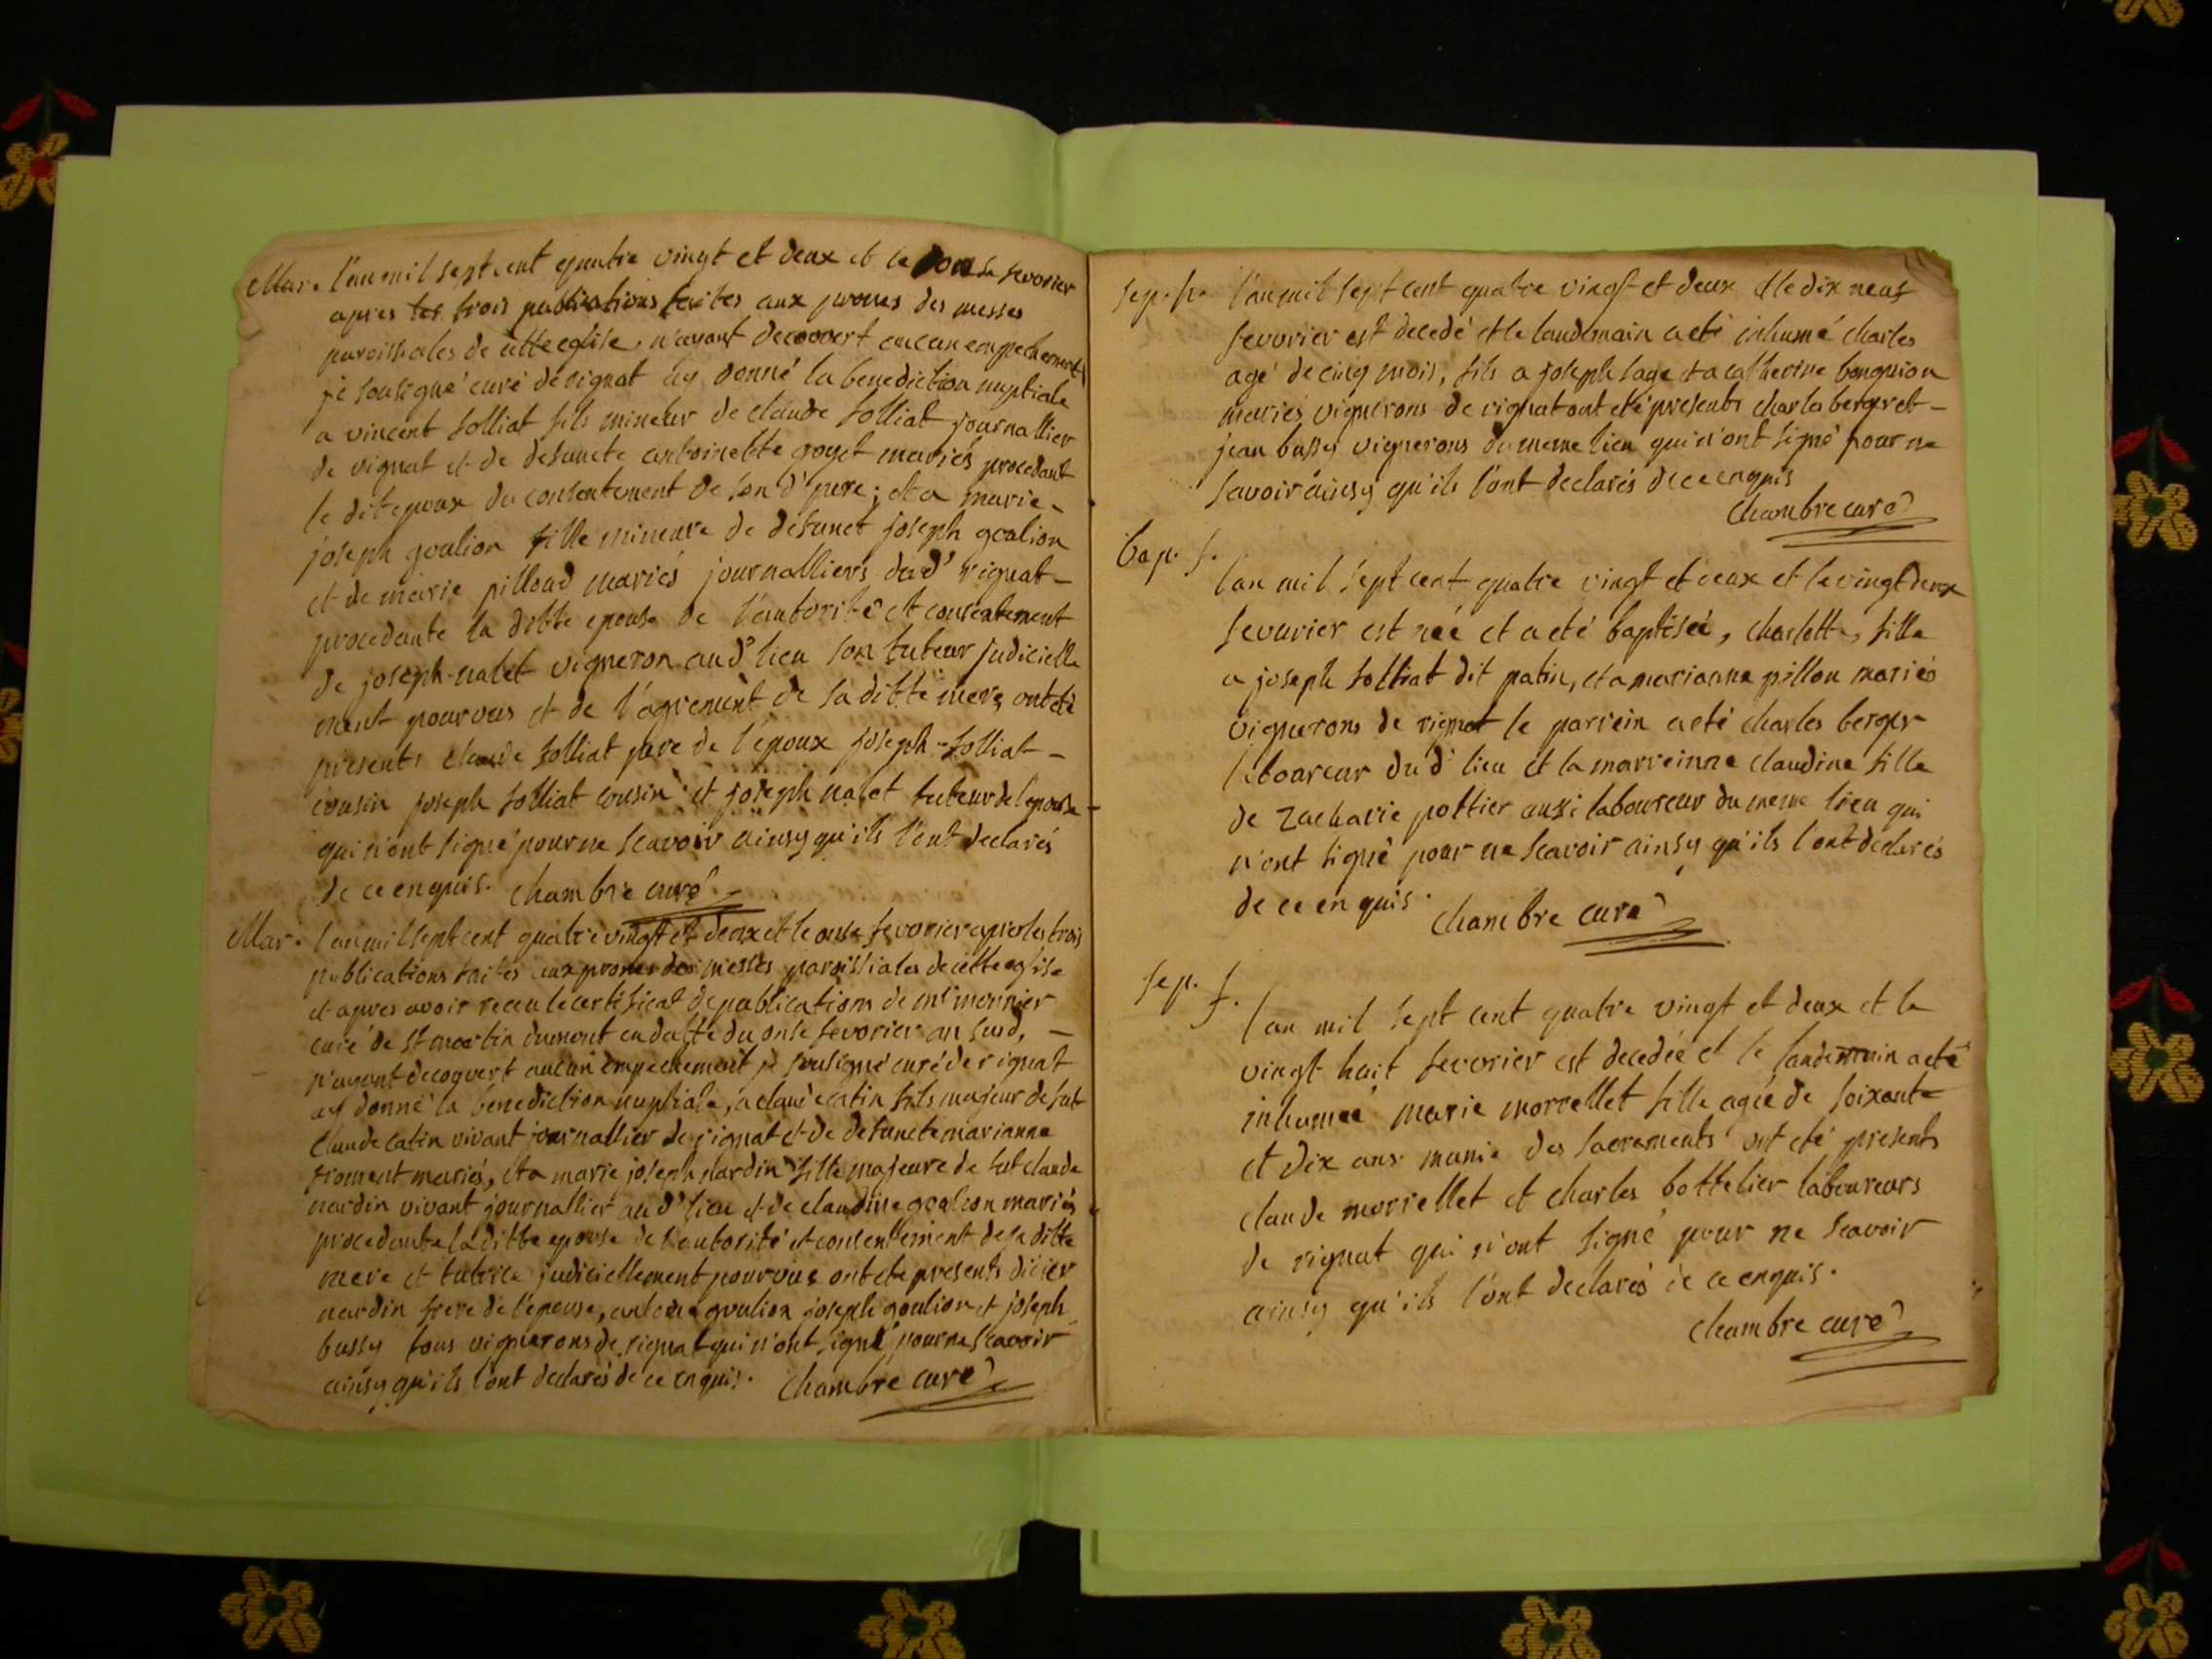 Mar. l'an mil sept cent quatre vingt et deux et le onse fevorier
apres les trois publications faites aux prones des messes
paroissiales de cette eglise, n'ayant decouvert aucun empechement
je sousigné curé de rignat ay donné la benediction nuptiale
a vincent folliat fils mineur de claude folliat journallier
de rignat et de defuncte antoinette goyet mariés procedant
le dit epoux du consentement de son d' pere; et a marie-
joseph goulion fille mineure de defunct joseph goulion
et de marie pilloud mariés journalliers dud' rignat-
procedante la ditte epouse de l'autorité et consentement
de joseph nalet vigneron aud' lieu son tuteur judicielle
ment pourvus et de l'agrement de sa ditte mere, ont eté
presents claude folliat pere de l'epoux joseph folliat-
cousin joseph folliat cousin et joseph nalet tuteur de l'epouse-
qui n'ont signé pour ne scavoir ainsy qu'ils l'ont declarés
de ce enquis. Chambre curé
Mar. l'an mil sept cent quatre vingt et deux et le onse fevorier apres les trois
publications faites aux prones des messes paroissiales de cette eglise
et apres avoir receu le certificat de publications de mr monnier
curé de st martin dumont en datte du onse fevorier an susd, -
n'ayant decouvert aucun empechement je sousigné curé de rignat
ay donné la benediction nuptiale, a claude catin fils majeur de fut
Claude catin vivant journallier de rignat et de defuncte marianne
froment mariés, et a marie joseph nardin fille majeure de fut claude
nardin vivant journallier aud' lieu et de claudine goulion mariés
procedante la ditte epouse de l'autorité et consentement de sa ditte
mere et tutrice judiciellement pourvue ont eté presents didier
nardin frere de l'epouse, antoine goulion joseph goulion et joseph
bussy tous vignerons de rignat qui n'ont signé pour ne scavoir
ainsy qu'ils l'ont declarés de ce enquis. Chambre curé
sep. f. l'an mil sept cent quatre vingt et deux et le dix neuf
fevorier est decedé et le landemain a eté inhumé charles
agé de cinq mois, fils a joseph sage et a catherine
mariés vignerons de rignat ont eté presents charles berger et-
jean bussy vignerons du meme lieu qui n'ont signé pour ne
scavoir ainsy qu'ils l'ont declarés de ce enquis
Chambre curé
bap. f.
l'an mil sept cent quatre vingt et deux et le vingt deux
fevurier est née et a eté baptiseé, charlotte, fille
a joseph folliat dit patin, et a marianne pillou mariés
vignerons de rignat le parrein a eté charles berger
laboureur dud' lieu et la marreinne claudine fille
de zacharie pottier aussi laboureur du meme lieu qui
n'ont signé pour ne scavoir ainsy qu'ils l'ont declarés
de ce enquis.
Chambre curé
sep. f.
l'an mil sept cent quatre vingt et deux et le
vingt huit fevorier est decedée et le landemain a eté
inhumeé marie morrellet fille ageé de soixante
et dix ans munie des sacrements ont eté presents
claude morrellet et charles bottelier laboureurs
de rignat qui n'ont signé pour ne scavoir
ainsy qu'ils l'ont declarés de ce enquis.
Chambre curé